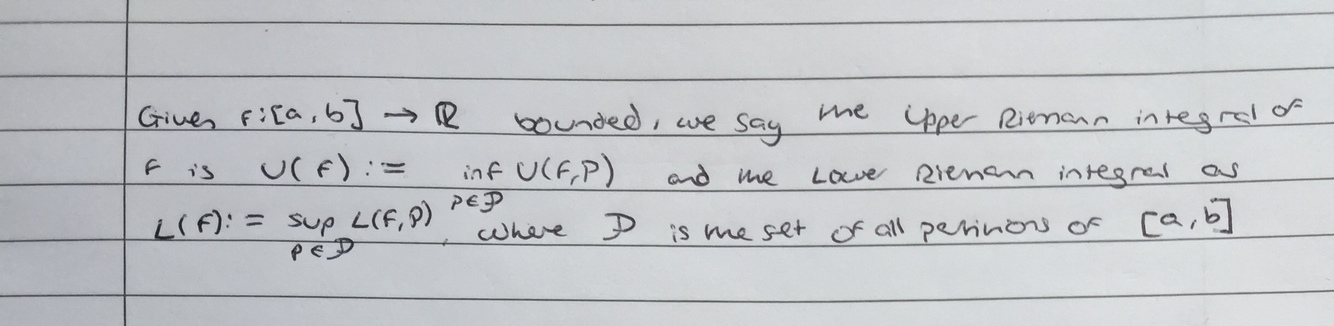 Given f:[a,b] → ℝ bounded, we say the Upper Riemann integral of
f is U(f) := inf U(f,P) and the Lower Riemann integral as
P∈𝒫
L(f) := sup L(f,P), where 𝒫 is the set of all partitions of [a,b]
P∈𝒫